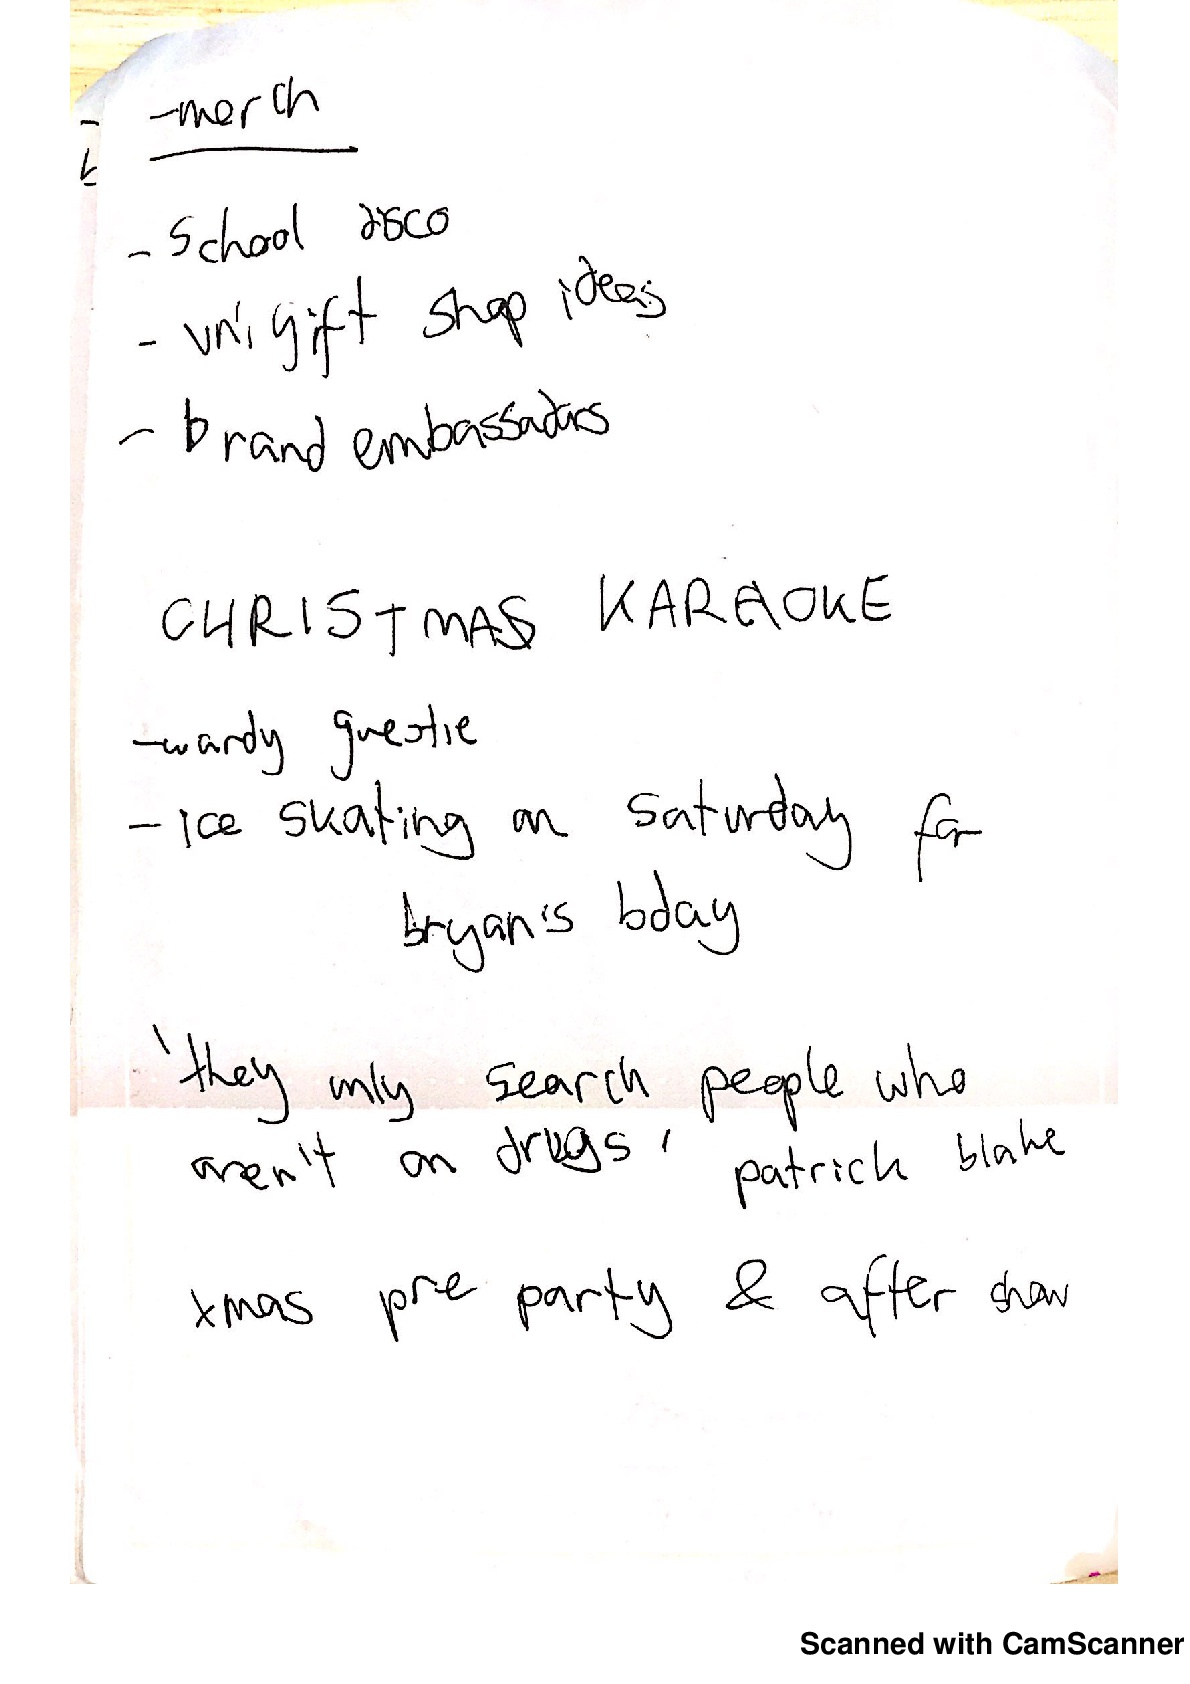 -merch
- School disco
- uni gift shop ideas
- brand embassadors
CHRISTMAS KARAOKE
-wardy guestie
- ice skating on saturday for
bryan's bday
'they only search people who
aren't on drugs' patrick blake
xmas pre party & after show
Scanned with CamScanner